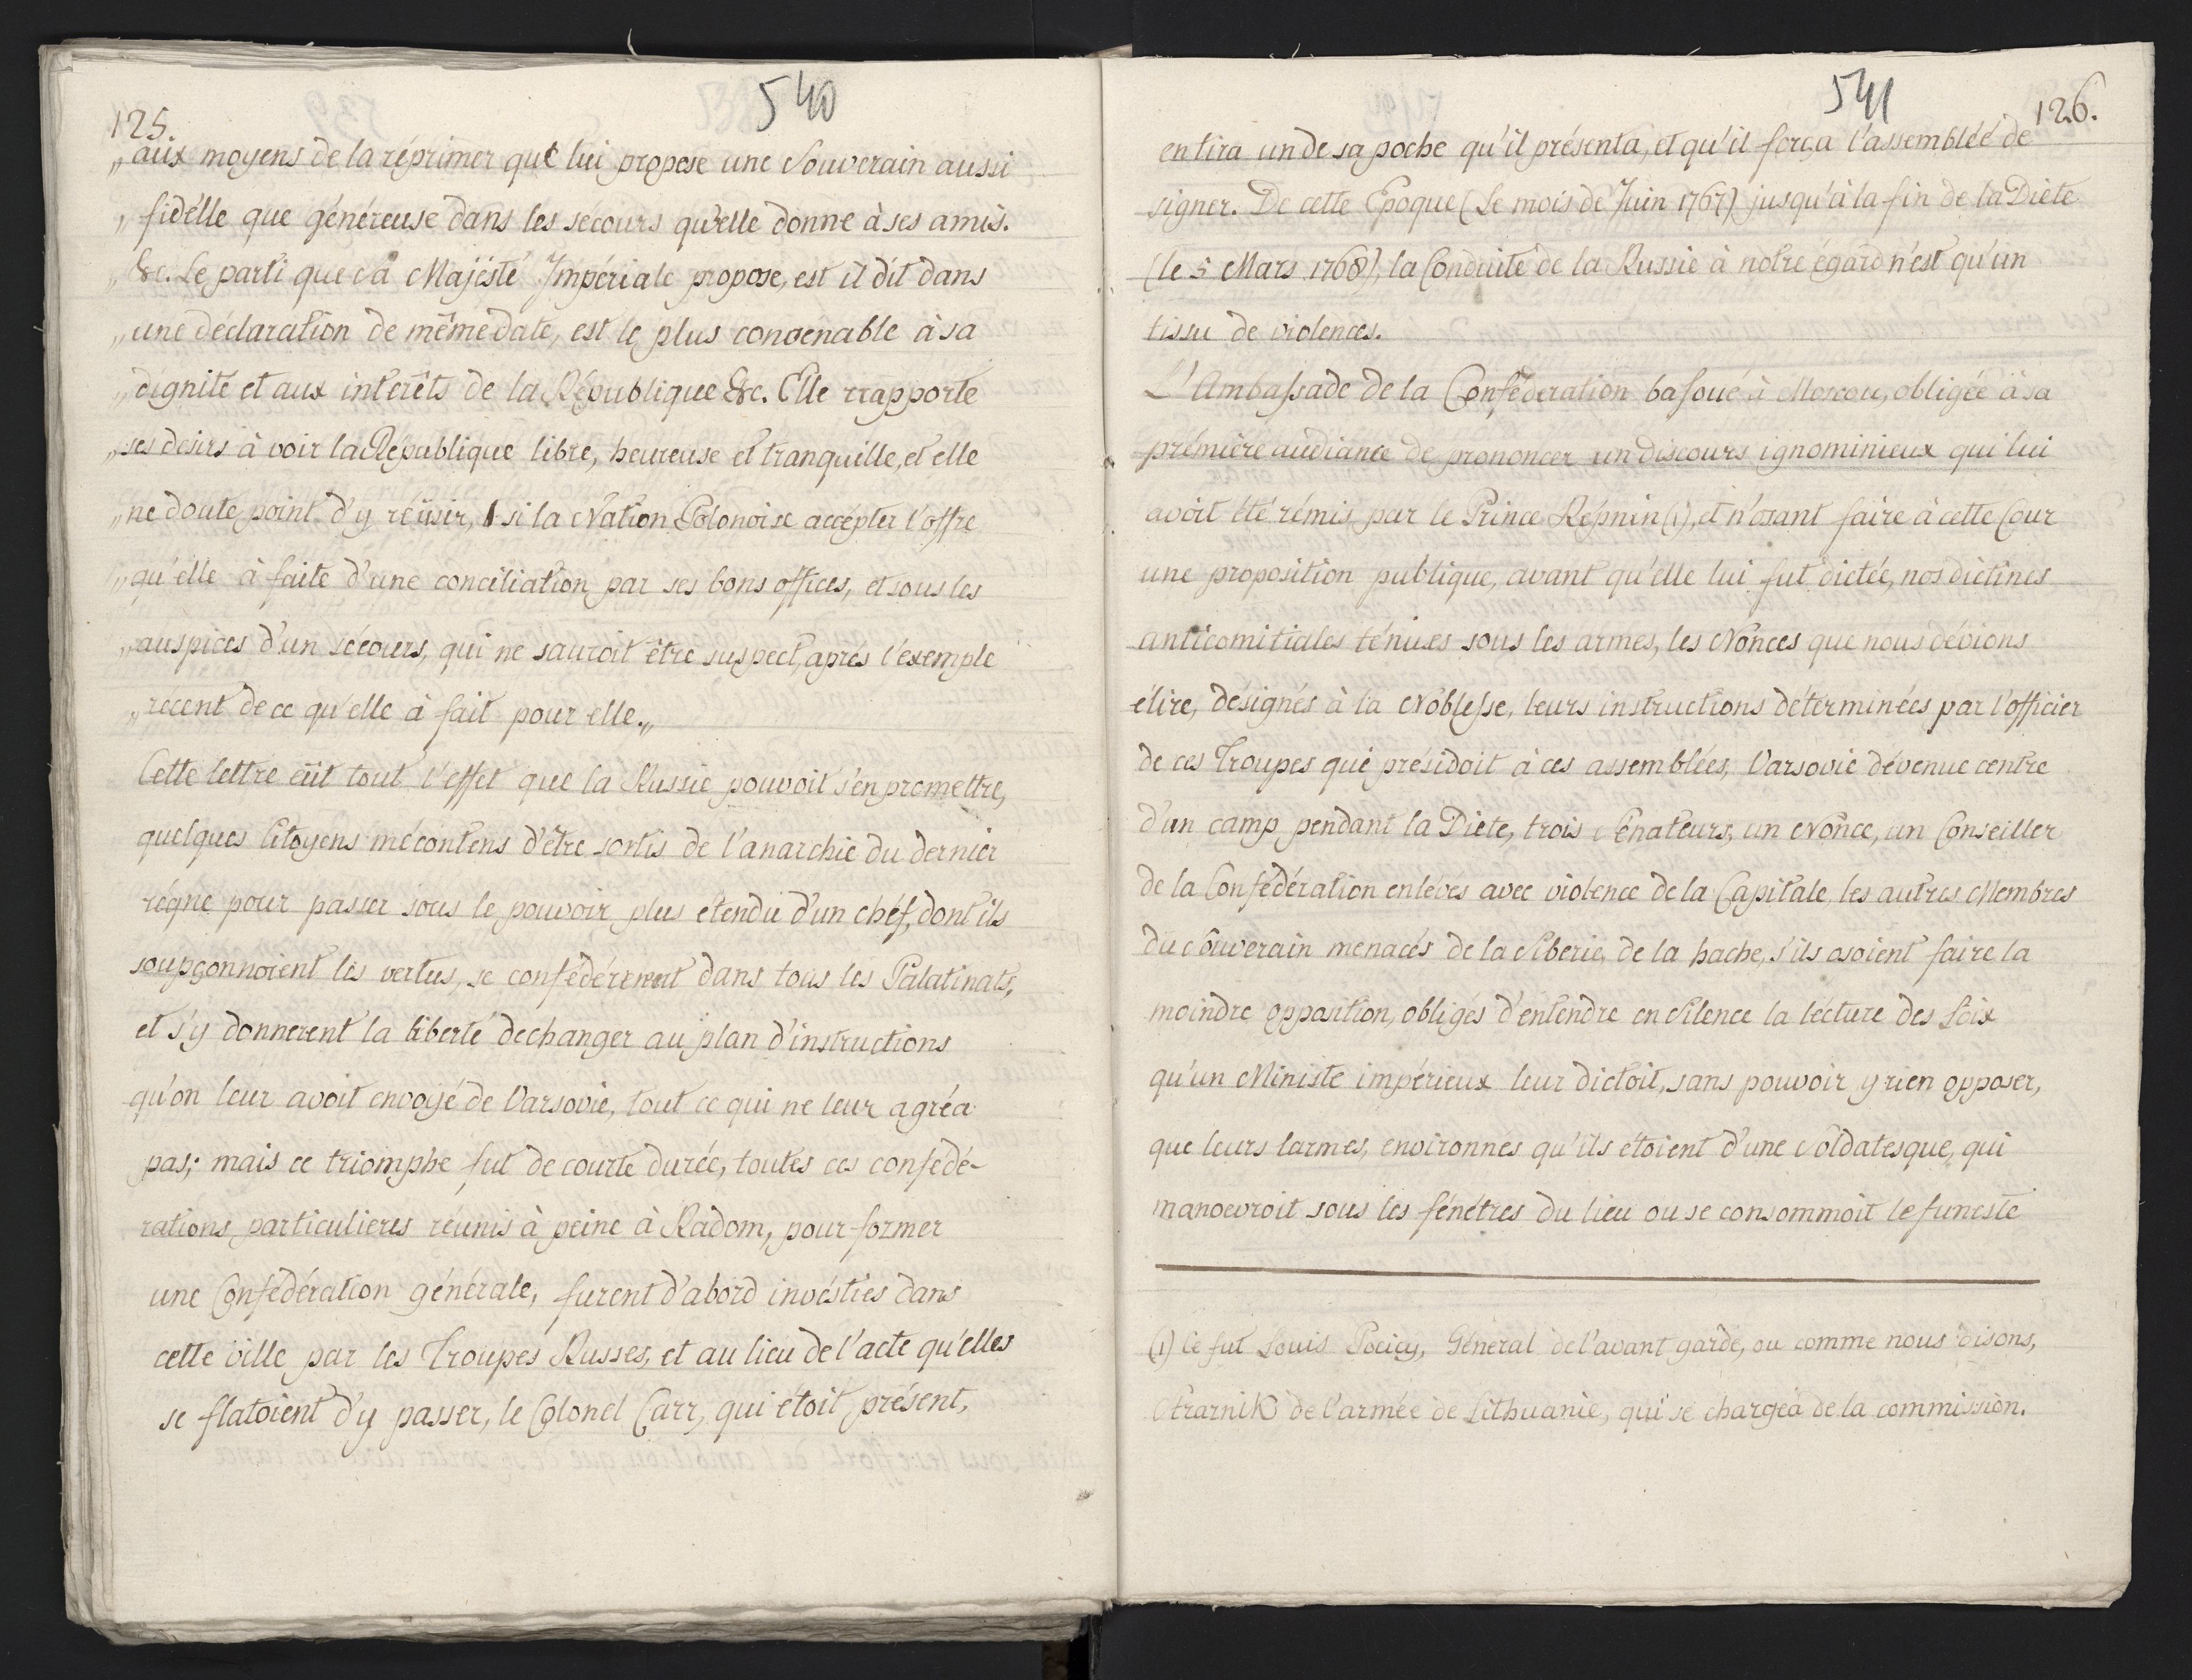 540
125.
„aux moyens de la réprimer que lui propose une Souverain aussi
„fidélle que généreuse dans les sécours qu'elle donne à ses amis.
„&c. Le parti que sa Majésté Impériale propose, est il dit dans
„une déclaration de même date, est le plus convenable à sa
„dignité et aux interêts de la République &c. Elle rapporte
„ses desirs à voir la République libre, heureuse et tranquille, et elle
„ne doute point d'y réüsir, si la Nation Polonoise accépter l'offre
„qu'elle à faite d'une conciliation par ses bons offices, et sous les
„auspices d'un sécours, qui ne sauroit être suspect, aprés l'exemple
„récent de ce qu'elle à fait pour elle.„
Cette lettre eüt tout l'effet que la Russie pouvoit s'en promettre,
quelques Citoyens mécontens d'être sortis de l'anarchie du dernier
régne pour passer sous le pouvoir plus etendu d'un chéf, dont ils
soupçonnoient les vertus, se confédérerent dans tous les Palatinats,
et s'y donnerent la liberté de changer au plan d'instructions
qu'on leur avoit envoyé de Varsovie, tout ce qui ne leur agréa
pas; mais ce triomphe fut de courte durée, toutes ces confédé-
rations particulieres réunis à peine à Radom, pour former
une Confédération générale, furent d'abord invésties dans
cette ville par les Troupes Russes, et au lieu de l'acte qu'elles
se flatoient d'y passer, le Colonel Carr, qui étoit présent,
541
126.
en tira un de sa poche qu'il présenta, et qu'il força l'assemblée de
signer. De cette Epoque (Le mois de Juin 1767) jusqu'à la fin de la Diéte
(le 5 Mars 1768), la Conduite de la Russie à notre égard n'est qu'un
tissu de violences.
L'Ambassade de la Confédération bafoué à Moscou, obligée à sa
prémière audiance de prononcer un discours ignominieux qui lui
avoit été rémis par le Prince Répnin (1), et n'osant faire à cette Cour
une proposition publique, avant qu'elle lui fut dictée, nos diétines
anticomitiales ténues sous les armes, les Nonces que nous dévions
élire, désignés à la Noblesse, leurs instructions déterminées par l'officier
de ces Troupes qui présidoit à ces assemblées, Varsovie dévenue centre
d'un camp pendant la Diéte, trois Sénateurs, un Nonce, un Conseiller
de la Confédération enlévés avec violence de la Capitale, les autres Membres
du Souverain menacés de la Siberie, de la hache, s'ils osoient faire la
moindre opposition, obligés d'entendre en Silence la lécture des Loix
qu'un Ministe impérieux leur dictoit, sans pouvoir y rien opposer,
que leurs larmes, environnés qu'ils étoient d'une Soldatesque, qui
manoevroit sous les fénétres du lieu ou se consommoit le funeste
(1) Ce fut Louis Pociey, Général de l'avant garde, ou comme nous disons,
Straznik de l'armée de Lithuanie, qui se chargea de la commission.